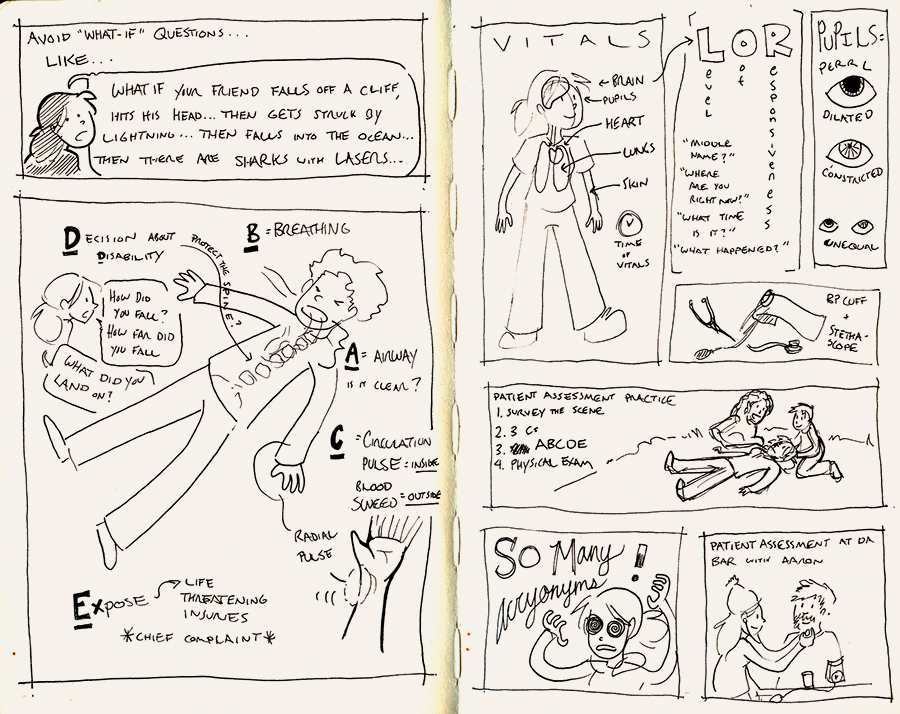 AVOID "WHAT-IF" QUESTIONS...
LIKE...
WHAT IF YOUR FRIEND FALLS OFF A CLIFF,
HITS HIS HEAD... THEN GETS STRUCK BY
LIGHTNING... THEN FALLS INTO THE OCEAN...
THEN THERE ARE SHARKS WITH LASERS...
DECISION ABOUT
DISABILITY
PROTECT THE SPINE?
B = BREATHING
HOW DID
YOU FALL?
HOW FAR DID
YOU FALL
WHAT DID YOU
LAND ON?
A = AIRWAY
IS IT CLEAR?
C = CIRCULATION
PULSE = INSIDE
BLOOD
SWEED = OUTSIDE
RADIAL
PULSE
EXPOSE
LIFE
THREATENING
INJURIES
*CHIEF COMPLAINT*
VITALS
BRAIN
PUPILS
HEART
LUNGS
SKIN
TIME
OF
VITALS
LOR
Level
of
Responsiveness
"MIDDLE
NAME?"
"WHERE
ARE YOU
RIGHT NOW?"
"WHAT TIME
IS IT?"
"WHAT HAPPENED?"
PUPILS=
PERRL
DILATED
CONSTRICTED
UNEQUAL
BP CUFF
+
STETHA-
SCOPE
PATIENT ASSESSMENT PRACTICE
1. SURVEY THE SCENE
2. 3 Cs
3. ABCDE
4. PHYSICAL EXAM
So Many
Acryonyms!
PATIENT ASSESSMENT AT DA
BAR WITH AARON